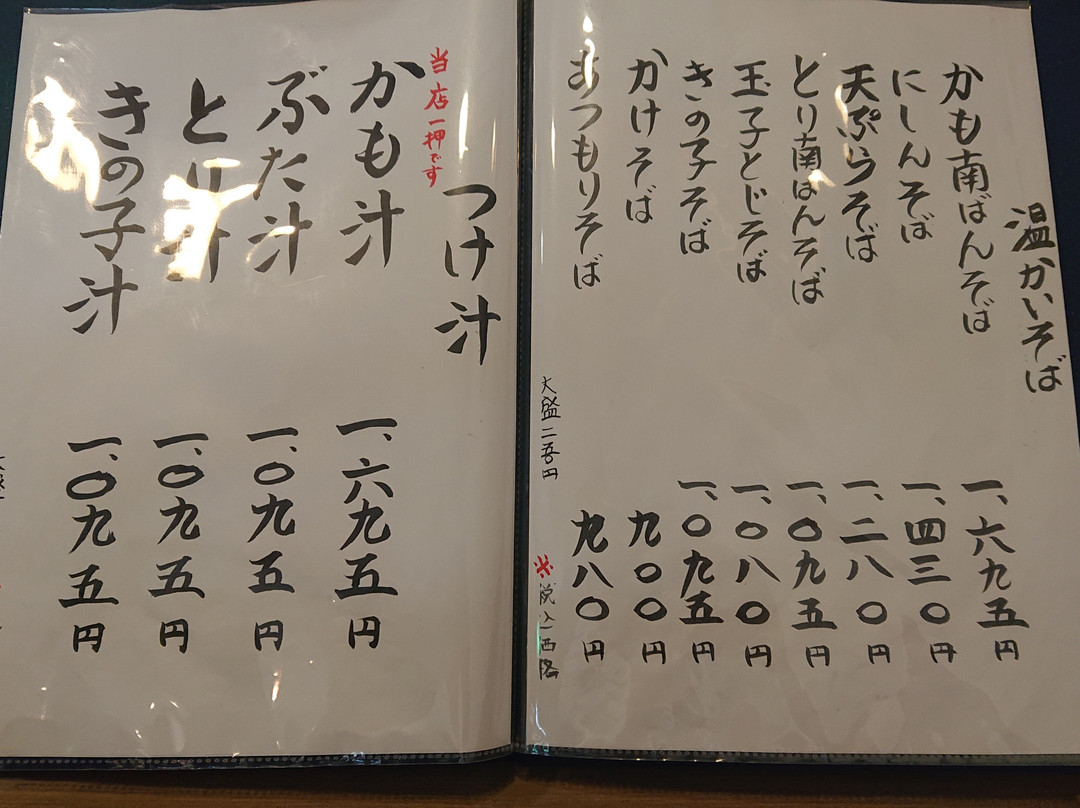 温かいそば
かも南ばんそば 一、六九五円
にしんそば 一、四三〇円
天ぷらそば 一、二八〇円
とり南ばんそば 一、〇九五円
玉子とじそば 一、〇八〇円
きの子そば 一、〇九五円
かけそば 九〇〇円
あつもりそば 九八〇円
大盛二五円
※税込価格
つけ汁
当店一押です
かも汁 一、六九五円
ぶた汁 一、〇九五円
とり汁 一、〇九五円
きの子汁 一、〇九五円